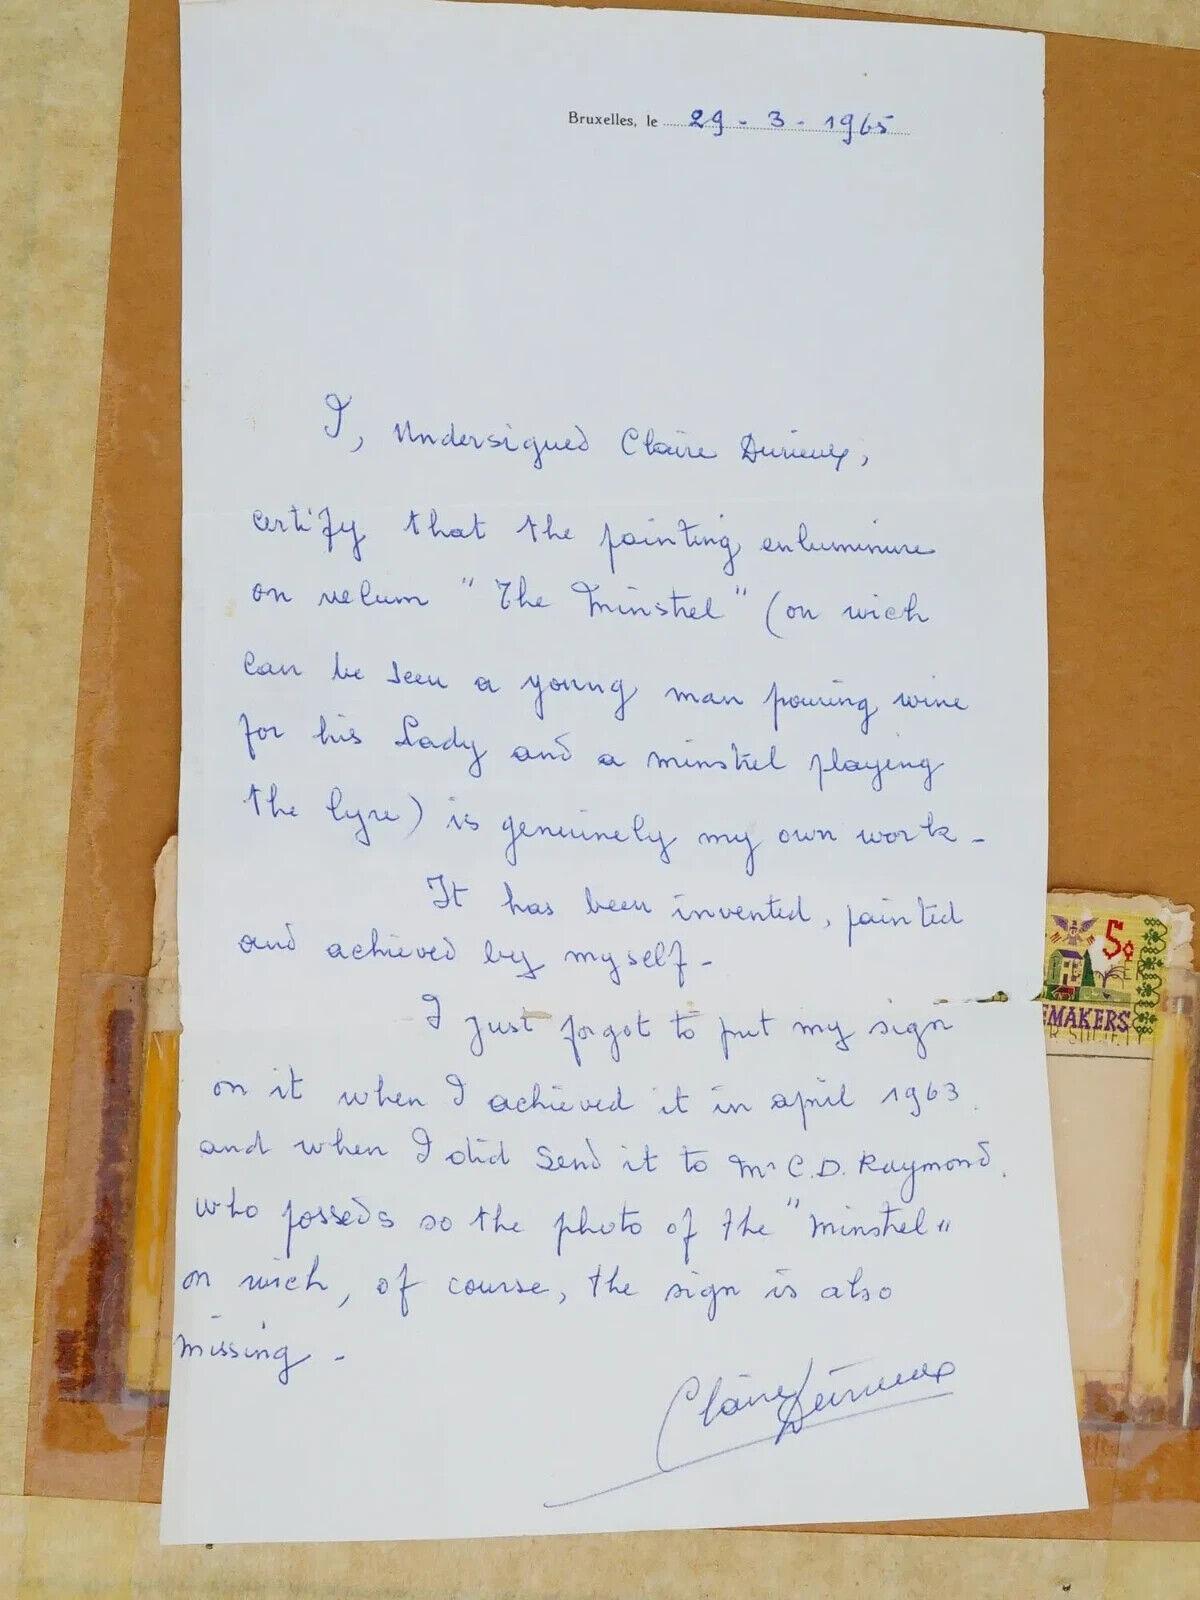 Bruxelles, le 29 - 3 - 1965
I, Undersigned Claire Durieux,
certify that the painting enluminure
on velum "The Minstrel" (on wich
can be seen a young man pouring wine
for his Lady and a minstrel playing
the lyre) is genuinely my own work -
It has been invented, painted
and achieved by myself -
I just forgot to put my sign
on it when I achieved it in april 1963.
and when I did send it to Mr C.D. Raymond,
who posseds so the photo of the "Minstrel"
on wich, of course, the sign is also
missing -
Claire Durieux
5¢
EMAKERS